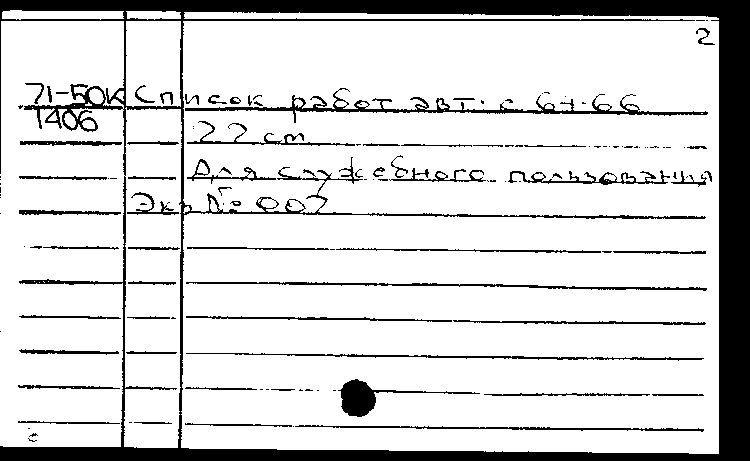 2
71-50K Список работ авт. с 64-66
1406 22 cm
Для служебного пользования
Экз № 007
c